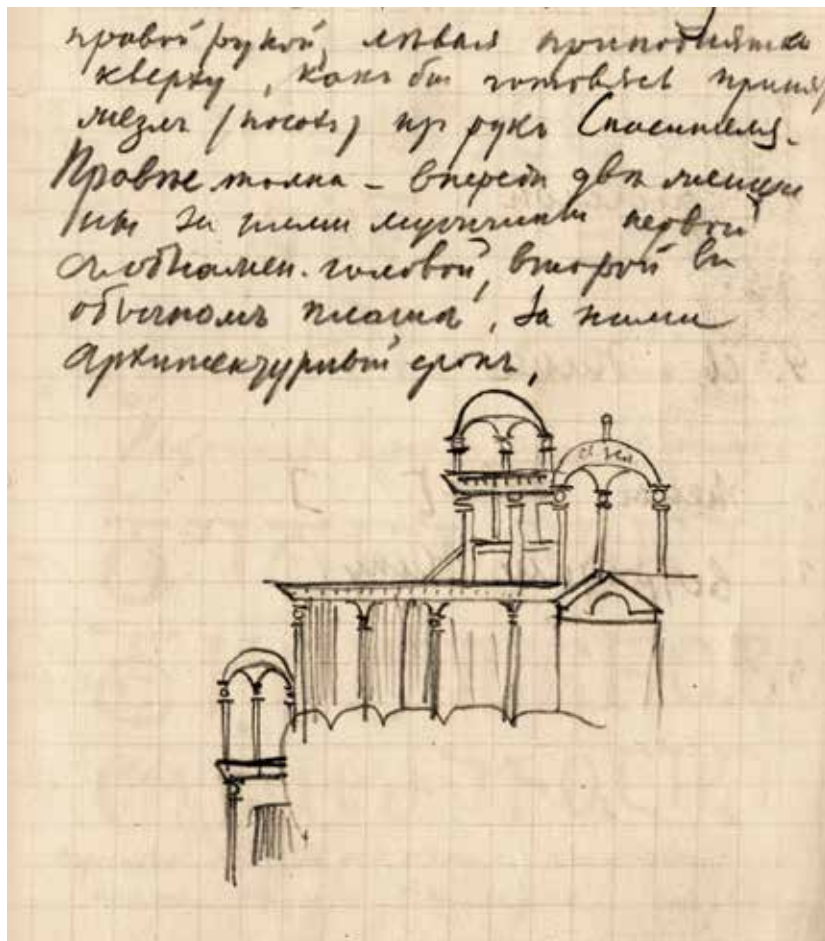 правой рукой, лѣвая приподнята
кверху, какъ бы готовясь приня
жезлъ (посохъ) из рукъ Спасителя.
Правѣе толпа – впереди двѣ женщи
ны за ними мужчины первый
съ обнажен. головой, второй въ
обычномъ плащѣ, за ними
архитектурный фонъ,